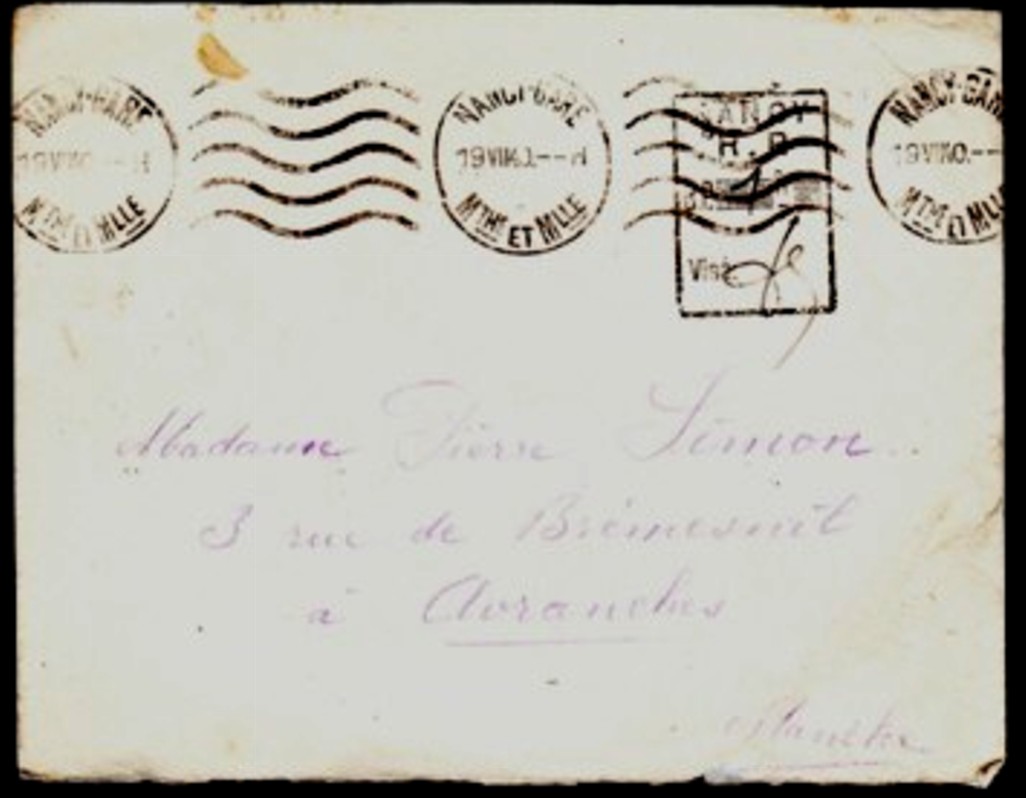 NANCY-GARE
MTHE ET MLLE
NANCY-GARE
19 VII 40
MTHE ET MLLE
NANCY
R.P.
Visa
NANCY-GARE
19 VII 40
MTHE ET MLLE
Madame Pierre Simon
3 rue de Brémesnil
à Avranches
Manche